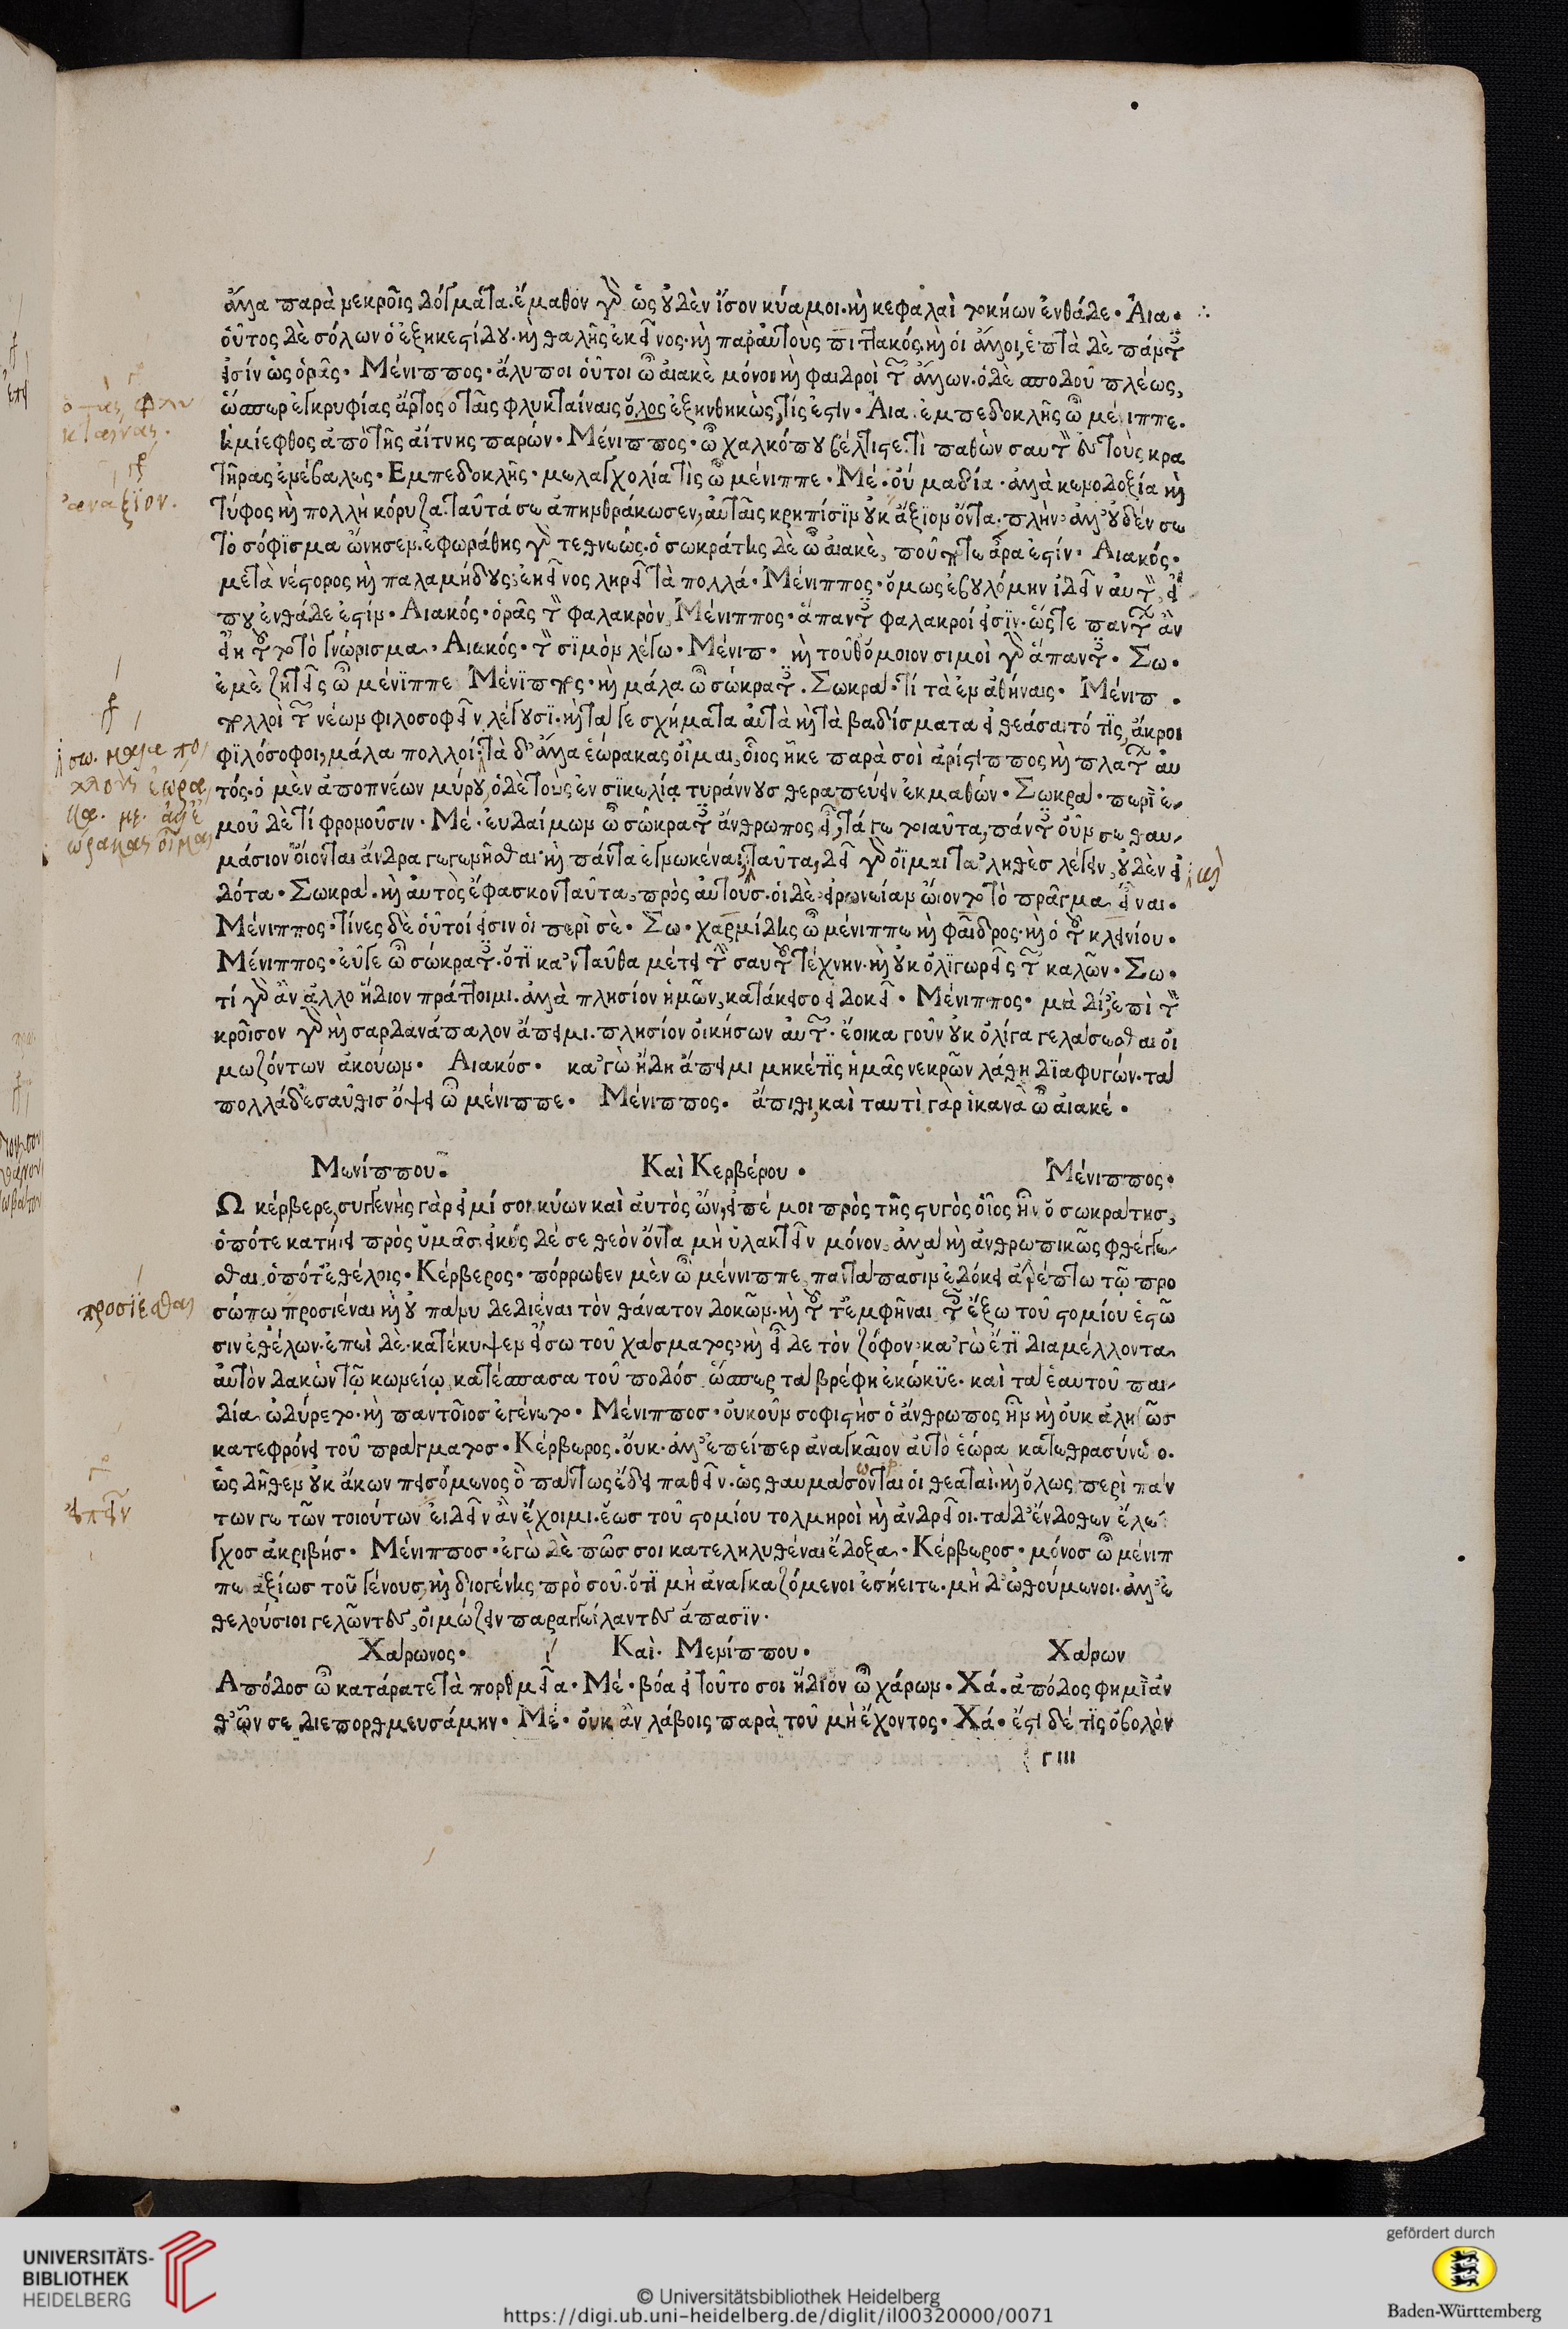 ἄλλα παρὰ νεκροῖς δόγματα. ἔμαθον γὰρ ὡς οὐδὲν ἴσον κύαμοι. καὶ κεφαλαὶ τοκήων ἐνθάδε. Αια.
οὗτος δὲ σόλων ὁ ἐξηκεστίδου. καὶ θαλῆς ἐκεῖνος. καὶ παρ' αὐτοὺς πιττακός. καὶ οἱ ἄλλοι, ἑπτὰ δὲ πάντες
εἰσίν ὡς ὁρᾷς. Μένιππος. ἄλυποι οὗτοι ὦ αἰακὲ μόνοι καὶ φαιδροὶ τῶν ἄλλων. ὁ δὲ σποδοῦ πλέως,
ὥσπερ ἐγκρυφίας ἄρτος ὁ ταῖς φλυκταίναις ὅλος ἐξηνθηκὼς, τίς ἐστιν. Αια. ἐμπεδοκλῆς ὦ μένιππε.
ἡμίεφθος ἀπὸ τῆς αἴτνης παρών. Μένιππος. ὦ χαλκόπου βέλτιστε. τὶ παθὼν σαυτὸν ἐς τοὺς κρα
τῆρας ἐνέβαλες. Εμπεδοκλῆς. μελαγχολία τὶς ὦ μένιππε. Μέ. οὐ μα δία. ἀλλὰ κενοδοξία καὶ
τύφος καὶ πολλὴ κόρυζα. ταῦτά σε ἀπηνθράκωσεν, αὐταῖς κρηπίσϊν οὐκ ἄξϊον ὄντα. πλὴν ἀλλ' οὐδέν σε
τὸ σόφϊσμα ὤνησεν. ἐφωράθης γὰρ τεθνεώς. ὁ σωκράτης δὲ ὦ αἰακὲ, ποῦ ποτε ἆρα ἐστίν. Αιακός.
μετὰ νέστορος καὶ παλαμήδους, ἐκεῖνος ληρεῖ τὰ πολλά. Μένιππος. ὅμως ἐβουλόμην ἰδεῖν αὐτὸν, εἴ
που ἐνθάδε ἐστίν. Αιακός. ὁρᾷς τὸν φαλακρὸν, Μένιππος. ἅπαντες φαλακροί εἰσϊν. ὥστε πάντων ἂν
εἴη τοῦτο τὸ γνώρισμα. Αιακός. τὸν σϊμὸν λέγω. Μένιπ. καὶ τοῦθ' ὅμοιον. σιμοὶ γὰρ ἅπαντες. Σω.
ἐμὲ ζητεῖς ὦ μένϊππε Μένϊππος. καὶ μάλα ὦ σώκρατες. Σωκρα. τί τὰ ἐν ἀθήναις. Μένιπ.
πολλοὶ τῶν νέων φιλοσοφεῖν λέγουσϊ. καὶ τά γε σχήματα αὐτὰ καὶ τὰ βαδίσματα εἰ θεάσαιτό τϊς, ἄκροι
φϊλόσοφοι, μάλα πολλοί. τὰ δ' ἄλλα ἑώρακας οἶμαι, οἷος ἧκε παρὰ σοὶ ἀρίστιππος καὶ πλάτων αὐ
τός. ὁ μὲν ἀποπνέων μύρου, ὁ δὲ τοὺς ἐν σϊκελίᾳ τυράννους θεραπεύειν ἐκμαθών. Σωκρα. περὶ ἐ-
μοῦ δὲ τί φρονοῦσιν. Μέ. ευδαίμων ὦ σώκρατες ἄνθρωπος εἶ, τά γε τοιαῦτα, πάντες οὖν σε θαυ-
μάσιον οἴονται ἄνδρα γεγενῆσθαι καὶ πάντα ἐγνωκέναι, ταῦτα, δεῖ γὰρ οἶμαι τἀληθὲς λέγειν, οὐδὲν εἰ
δότα. Σωκρα. καὶ αὐτὸς ἔφασκον ταῦτα, πρὸς αὐτοὺς. οἱ δὲ εἰρωνείαν ᾤοντο τὸ πρᾶγμα εἶναι.
Μένιππος. τίνες δὲ οὗτοί εἰσιν οἱ περὶ σέ. Σω. χαρμίδης ὦ μένιππε καὶ φαῖδρος. καὶ ὁ τοῦ κλεινίου.
Μένιππος. εὖγε ὦ σώκρατες. ὅτϊ κἀνταῦθα μέτει τὴν σαυτοῦ τέχνην. καὶ οὐκ ὀλϊγωρεῖς τῶν καλῶν. Σω.
τί γὰρ ἂν ἄλλο ἥδιον πράττοιμι. ἀλλὰ πλησίον ἡμῶν, κατάκεισο εἰ δοκεῖ. Μένιππος. μὰ δί', ἐπὶ τὸν
κροῖσον γὰρ καὶ σαρδανάπαλον ἄπειμι. πλησίον οἰκήσων αὐτῶν. ἔοικα γοῦν οὐκ ὀλίγα γελάσεσθαι οἰ
μωζόντων ἀκούων. Αιακόσ. κἀγὼ ἤδη ἄπειμι μηκέτϊς ἡμᾶς νεκρῶν λάθῃ δϊαφυγών. τὰ
πολλὰ δ' ἐσαῦθισ ὄψει ὦ μένιππε. Μένιππος. ἄπιθι, καὶ ταυτὶ γὰρ ἱκανὰ ὦ αἰακέ.
Μενίππου. Καὶ Κερβέρου. Μένιππος.
Ω κέρβερε, συγγενὴς γάρ εἰμί σοι κύων καὶ αὐτὸς ὤν, εἰπέ μοι πρὸς τῆς στυγὸς οἷος ἦν ὁ σωκράτησ,
ὁπότε κατήει πρὸς ὑμᾶσ. εἰκός δέ σε θεὸν ὄντα μὴ ὑλακτεῖν μόνον, ἀλλὰ καὶ ἀνθρωπικῶς φθέγγε-
σθαι. ὁπότ' ἐθέλοις. Κέρβερος. πόρρωθεν μὲν ὦ μέννιππε, παντάπασιν ἐδόκει ἀτρέπτω τῷ προ
σώπω προσιέναι καὶ οὐ πάνυ δεδιέναι τὸν θάνατον δοκῶν. καὶ τοῦτ' ἐμφῆναι τοῖς ἔξω τοῦ στομίου ἑστῶ
σιν ἐθέλων. ἐπεὶ δὲ. κατέκυψεν εἴσω τοῦ χάσματος, καὶ εἶδε τὸν ζόφον, κἀγὼ ἔτϊ διαμέλλοντα
αὐτὸν δακὼν τῷ κωνείῳ, κατέσπασα τοῦ ποδόσ. ὥσπερ τὰ βρέφη ἐκώκϋε. καὶ τὰ ἑαυτοῦ παι-
δία ὠδύρετο. καὶ παντοῖοσ ἐγένετο. Μένιπποσ. οὐκοῦν σοφιστὴσ ὁ ἄνθρωπος ἦν καὶ οὐκ ἀληθῶσ
κατεφρόνει τοῦ πράγματοσ. Κέρβερος. οὐκ. ἀλλ' ἐπείπερ ἀναγκαῖον αὐτὸ ἑώρα κατεθρασύνετο.
ὡς δῆθεν οὐκ ἄκων πεισόμενος ὃ πάντως ἔδει παθεῖν. ὡς θαυμάσονται οἱ θεαταὶ. καὶ ὅλως περὶ πάν
των γε τῶν τοιούτων εἰδεῖν ἂν ἔχοιμι. ἕωσ τοῦ στομίου τολμηροὶ καὶ ἀνδρεῖοι. τὰ δ' ἔνδοθεν ἔλε
γχοσ ἀκριβήσ. Μένιπποσ. ἐγὼ δὲ πῶσ σοι κατεληλυθέναι ἔδοξα. Κέρβεροσ. μόνοσ ὦ μένιπ
πε ἀξίωσ τοῦ γένουσ, καὶ διογένης πρὸ σοῦ. ὅτϊ μὴ ἀναγκαζόμενοι ἐσήειτε. μὴ δ' ὠθούμενοι. ἀλλ' ἐ
θελούσιοι γελῶντες, οἰμώζειν παραγγείλαντες ἅπασϊν.
Χάρωνος. Καὶ. Μενίππου. Χάρων
Απόδοσ ὦ κατάρατε τὰ πορθμεῖα. Μέ. βόα εἰ τοῦτο σοι ἥδϊον ὦ χάρων. Χά. ἀπόδος φημὶ ἀν
θ' ὧν σε διεπορθμευσάμην. Μέ. οὐκ ἂν λάβοις παρὰ τοῦ μὴ ἔχοντος. Χά. ἔστι δέ τϊς ὀβολὸν
Γ III
προσίεσθαι
εἰπεῖν
ἀναξίον.
UNIVERSITÄTS-
BIBLIOTHEK
HEIDELBERG
© Universitätsbibliothek Heidelberg
https://digi.ub.uni-heidelberg.de/diglit/il00320000/0071
gefördert durch
Baden-Württemberg